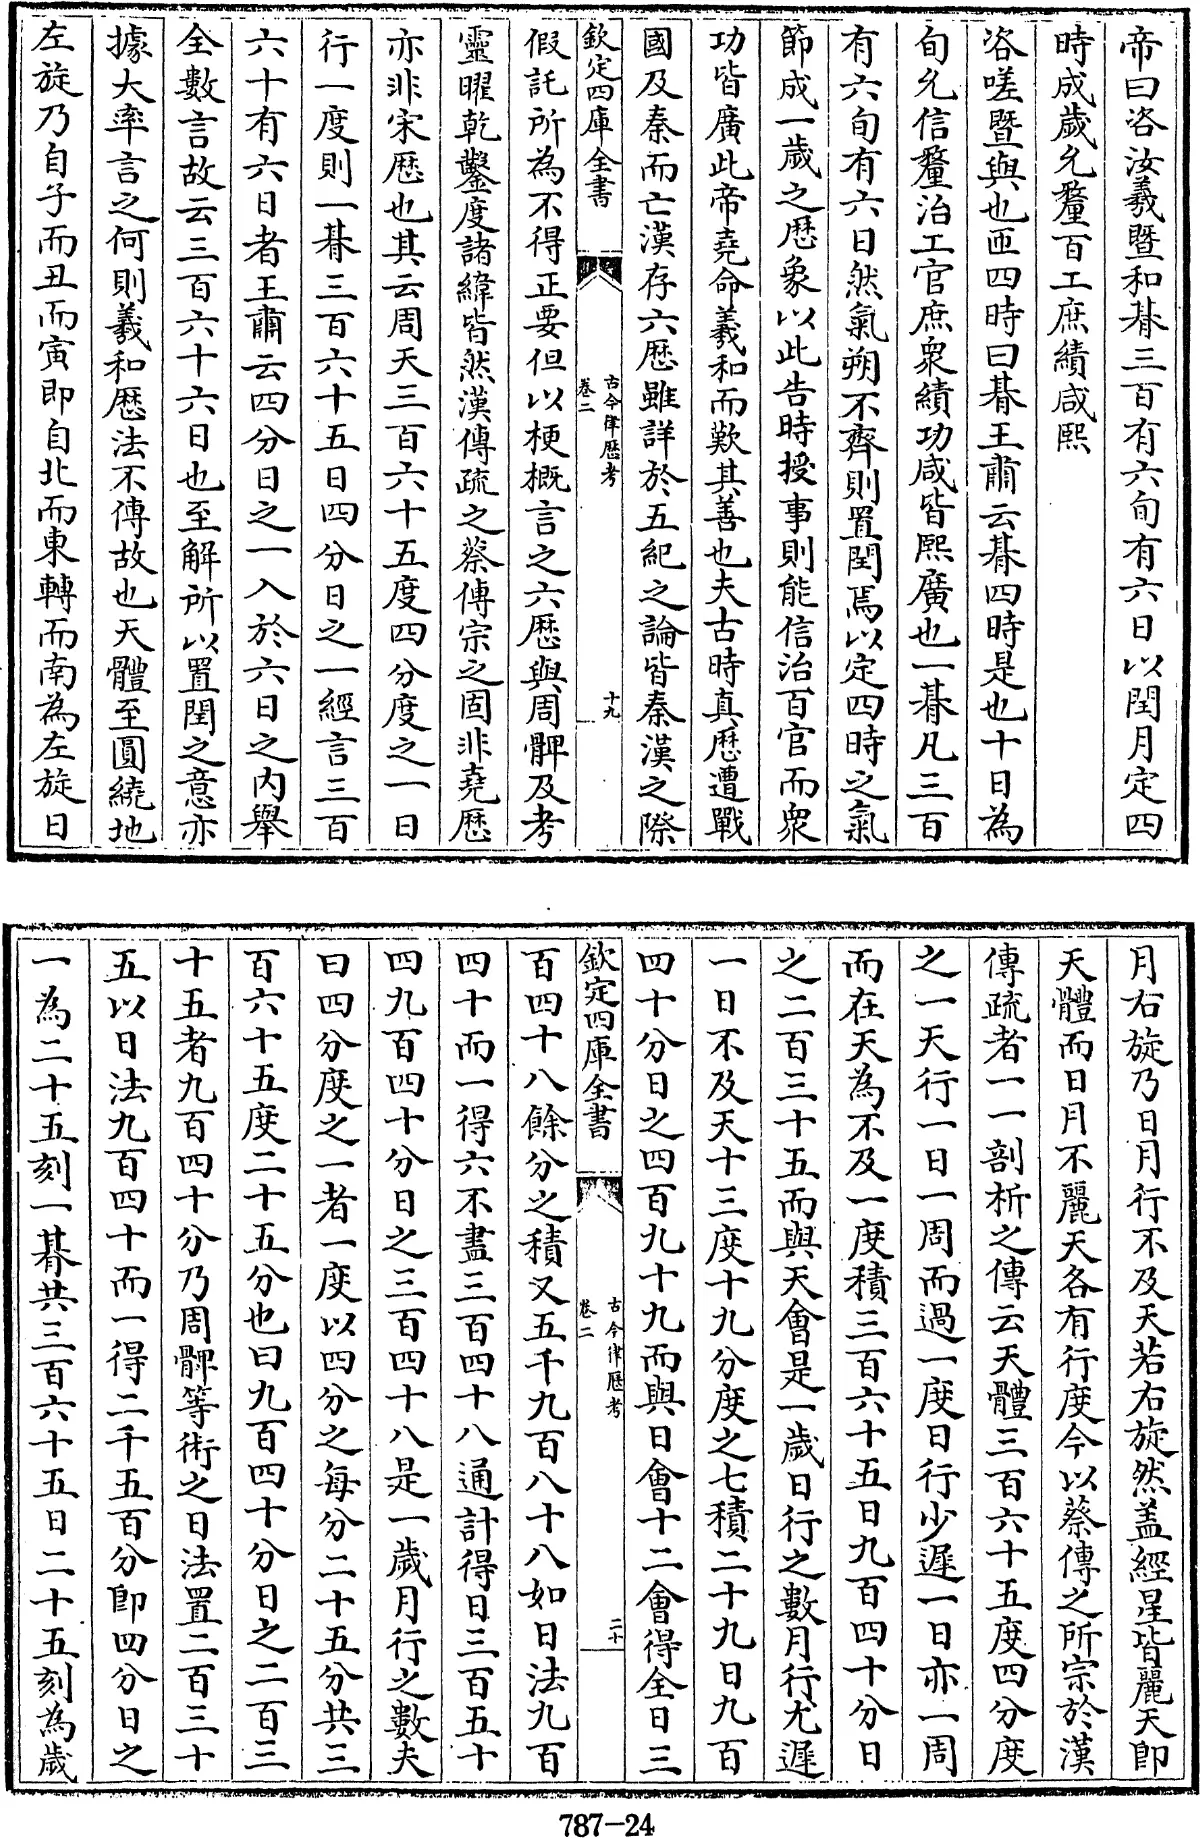 帝曰咨汝羲暨和朞三百有六旬有六日以閏月定四
時成歲允釐百工庶績咸熙
咨嗟暨與也匝四時曰朞王肅云朞四時是也十日為
旬允信釐治工官庶衆績功咸皆熙廣也一朞凡三百
有六旬有六日然氣朔不齊則置閏焉以定四時之氣
節成一歲之厯象以此告時授事則能信治百官而衆
功皆廣此帝堯命羲和而歎其善也夫古時真厯遭戰
國及秦而亡漢存六厯雖詳於五紀之論皆秦漢之際
欽定四庫全書
古今律厯考
卷二
十九
假託所為不得正要但以梗概言之六厯與周髀及考
靈曜乾鑿度諸緯皆然漢傳疏之蔡傳宗之固非堯厯
亦非宋厯也其云周天三百六十五度四分度之一日
行一度則一朞三百六十五日四分日之一經言三百
六十有六日者王肅云四分日之一入於六日之內舉
全數言故云三百六十六日也至解所以置閏之意亦
據大率言之何則羲和厯法不傳故也天體至圓繞地
左旋乃自子而丑而寅即自北而東轉而南為左旋日
月右旋乃日月行不及天若右旋然盖經星皆麗天即
天體而日月不麗天各有行度今以蔡傳之所宗於漢
傳疏者一一剖析之傳云天體三百六十五度四分度
之一天行一日一周而過一度日行少遲一日亦一周
而在天為不及一度積三百六十五日九百四十分日
之二百三十五而與天會是一歲日行之數月行尤遲
一日不及天十三度十九分度之七積二十九日九百
四十分日之四百九十九而與日會十二會得全日三
欽定四庫全書
古今律厯考
卷二
二十
百四十八餘分之積又五千九百八十八如日法九百
四十而一得六不盡三百四十八通計得日三百五十
四九百四十分日之三百四十八是一歲月行之數夫
曰四分度之一者一度以四分之每分二十五分共三
百六十五度二十五分也曰九百四十分日之二百三
十五者九百四十分乃周髀等術之日法置二百三十
五以日法九百四十而一得二千五百分卽四分日之
一為二十五刻一朞共三百六十五日二十五刻為歲
787-24